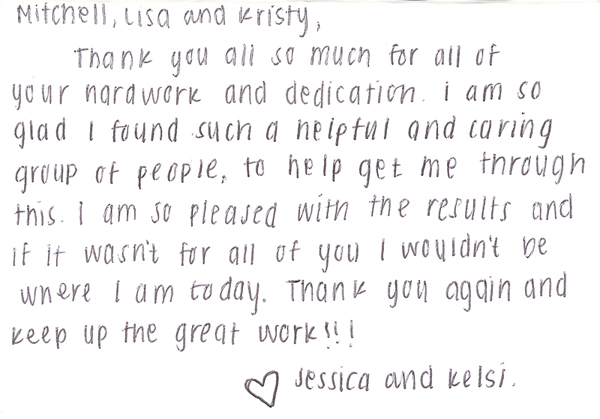 Mitchell, Lisa and Kristy,
Thank you all so much for all of
your hardwork and dedication. i am so
glad I found such a helpful and caring
group of people, to help get me through
this. I am so pleased with the results and
if it wasn't for all of you I wouldn't be
where I am today. Thank you again and
keep up the great work!!!
♡ Jessica and Kelsi.